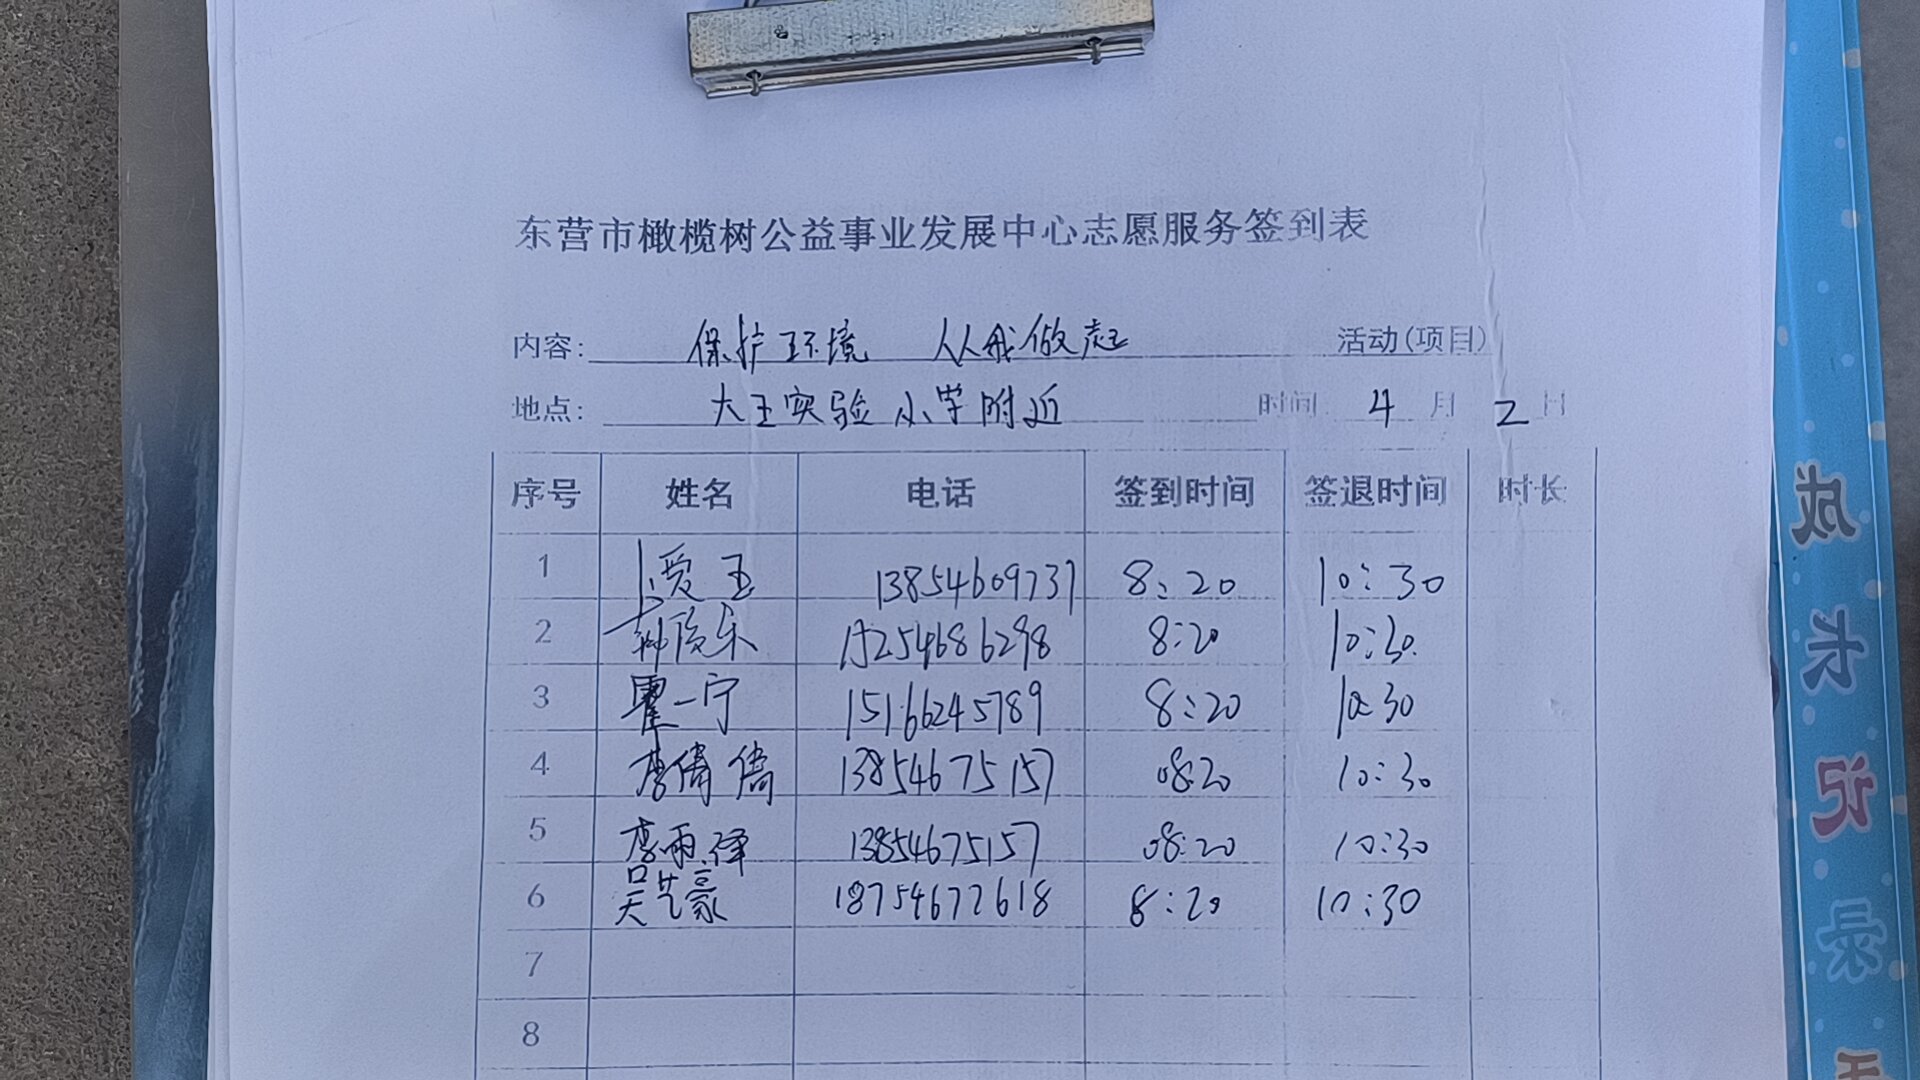 东营市橄榄树公益事业发展中心志愿服务签到表
内容: 保护环境 从我做起 活动(项目)
地点: 大王实验小学附近 时间 4 月 2 日
序号 姓名 电话 签到时间 签退时间 时长
1 卜爱玉 13854609737 8:20 10:30
2 韩俊乐 15254686298 8:20 10:30
3 霍一宁 15166245789 8:20 10:30
4 李倩倩 13854675157 08:20 10:30
5 李雨泽 13854675157 08:20 10:30
6 吴艺豪 18754672618 8:20 10:30
7
8
成长记录